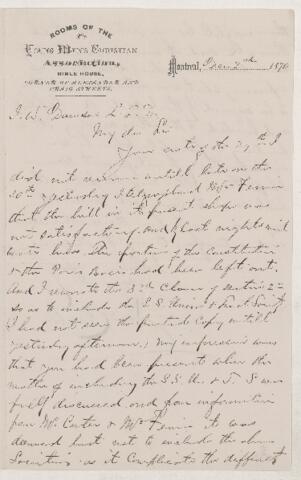 ROOMS OF THE
Young Men's Christian
Association,
BIBLE HOUSE,
CORNER OF ALEXANDER AND
CRAIG STREETS.
Montreal, 2nd 1870
J. W. Dawson L.L.D.
My dear Sir
Your note of the 29th I
did not receive untill late on the
30th yesterday I telegraphed Mr
that the bill in its present shape was
not satisfactory, and last night
The portion of the Constitution
& the had been left out.
And I rewrote the 3rd Clause of section 2
so as to include the S.S. Union &
I had not seen the printed copy untill
yesterday afternoon. My impression was
that you had been present when the
matter of including the S.S. U. & T. S was
fully discussed and from information
from Mr Carter & Mr it was
deemed best not to include the above
Societies as it complicates the different